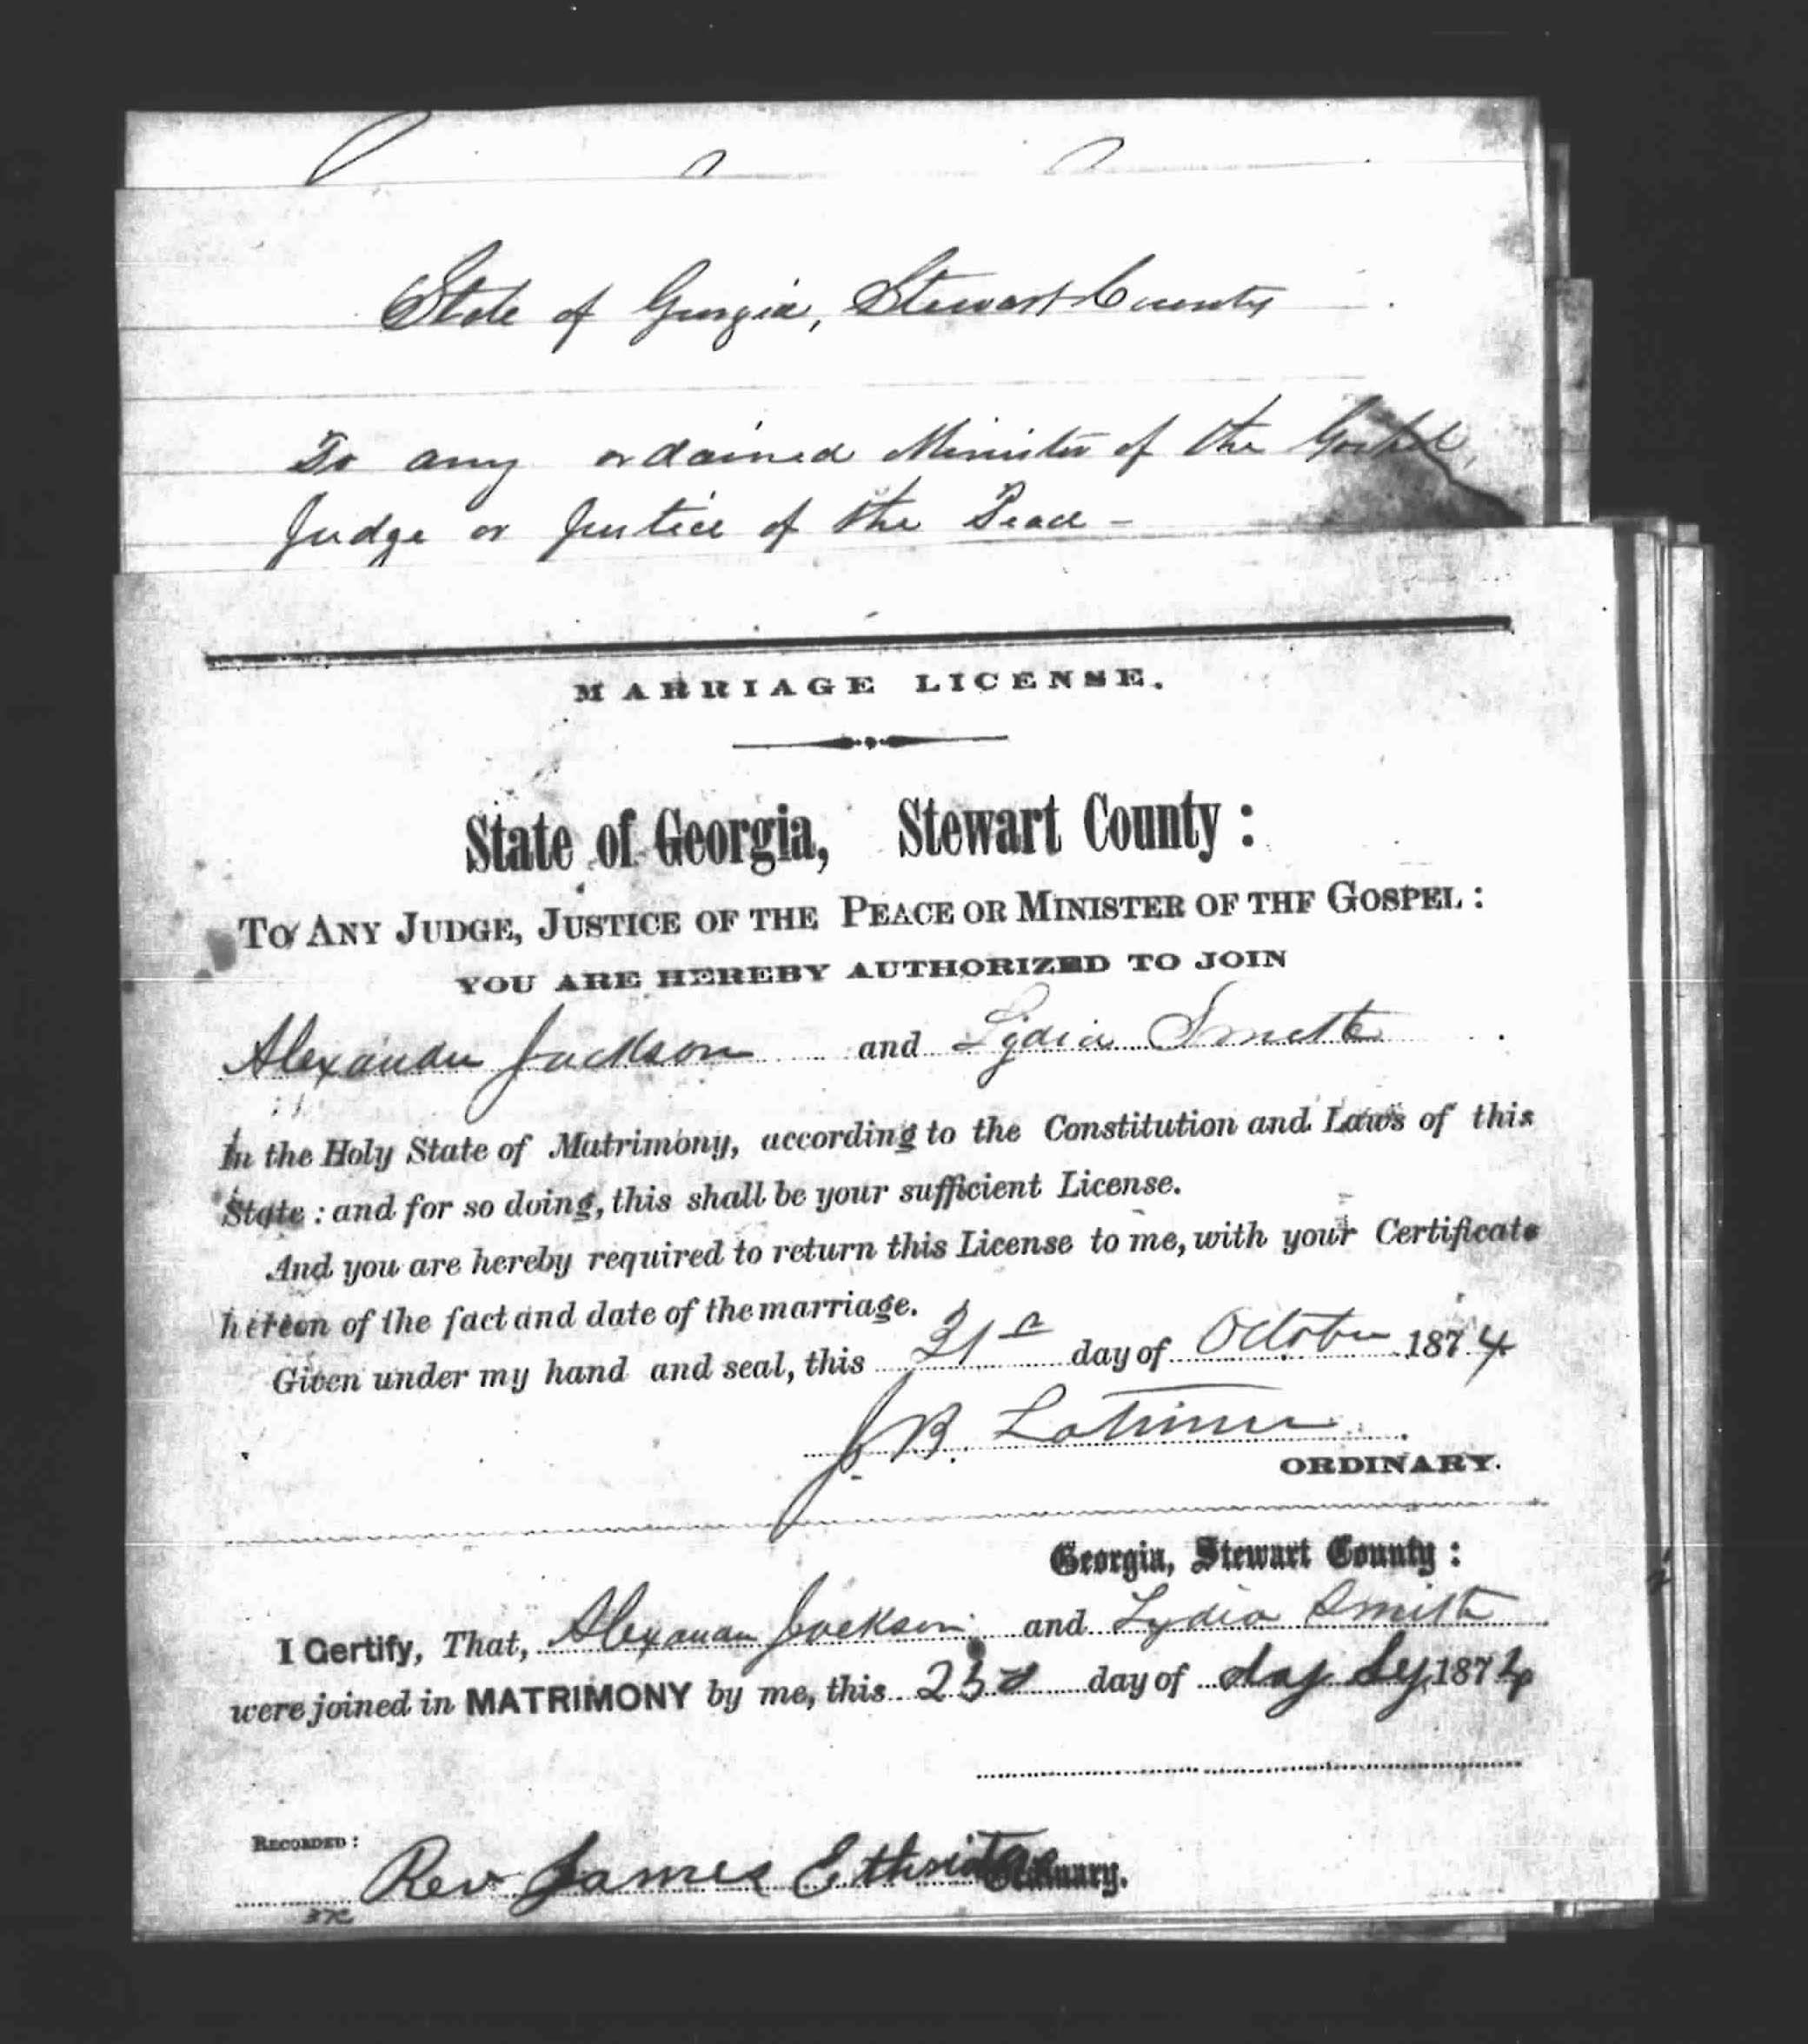 State of Georgia, Stewart County
To any ordained Minister of the Gospel,
Judge or Justice of the Peace –
MARRIAGE LICENSE.
State of Georgia, Stewart County :
TO ANY JUDGE, JUSTICE OF THE PEACE OR MINISTER OF THE GOSPEL :
YOU ARE HEREBY AUTHORIZED TO JOIN
Alexander Jackson and Lydia Smith
In the Holy State of Matrimony, according to the Constitution and Laws of this
State : and for so doing, this shall be your sufficient License.
And you are hereby required to return this License to me, with your Certificate
hereon of the fact and date of the marriage.
Given under my hand and seal, this 21st day of October 1874
J. B. Latimer
ORDINARY.
Georgia, Stewart County :
I Certify, That, Alexander Jackson and Lydia Smith
were joined in MATRIMONY by me, this 23d day of 1874
RECORDED :
Rev James Ordinary.